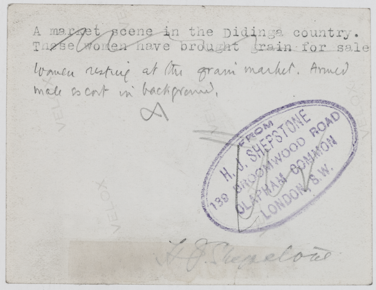 A market scene in the Didinga country.
These women have brought grain for sale
Women resting at the grain market. Armed
male escort in background.
FROM
H. J. SHEPSTONE
139 BROOMWOOD ROAD
CLAPHAM COMMON
LONDON, S.W.
VELOX
VELOX
VELOX
H J Shepstone